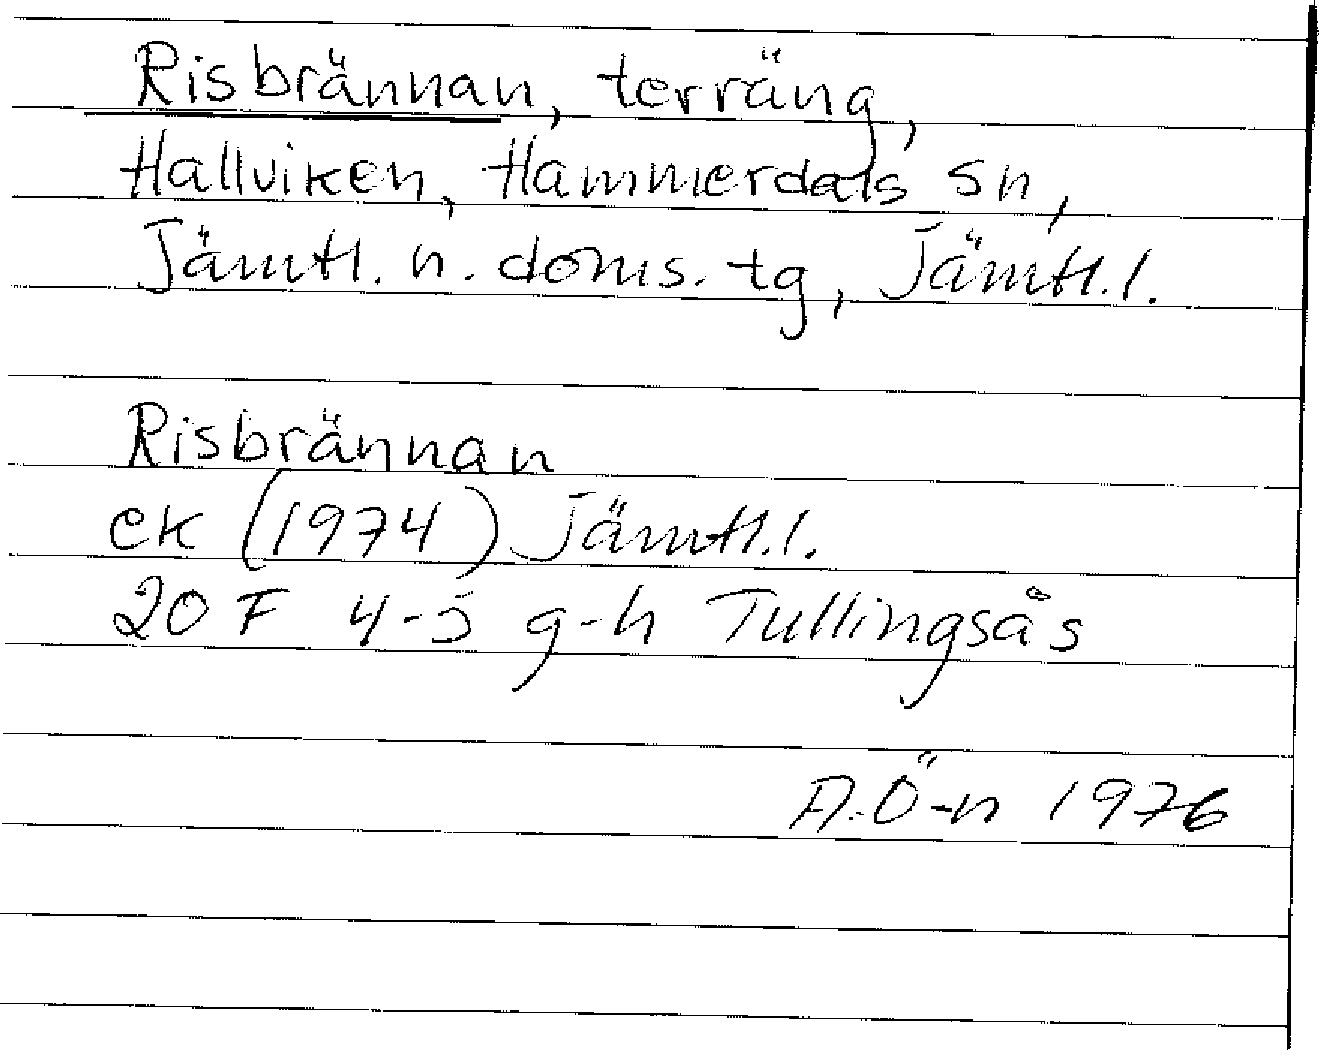 Risbrännan, terräng,
Hallviken, Hammerdals sn,
Jämtl. n. doms. tg, Jämtl.l.
Risbrännan
ek (1974) Jämtl.l.
20 F 4-5 g-h Tullingsås
A.Ö-n 1976